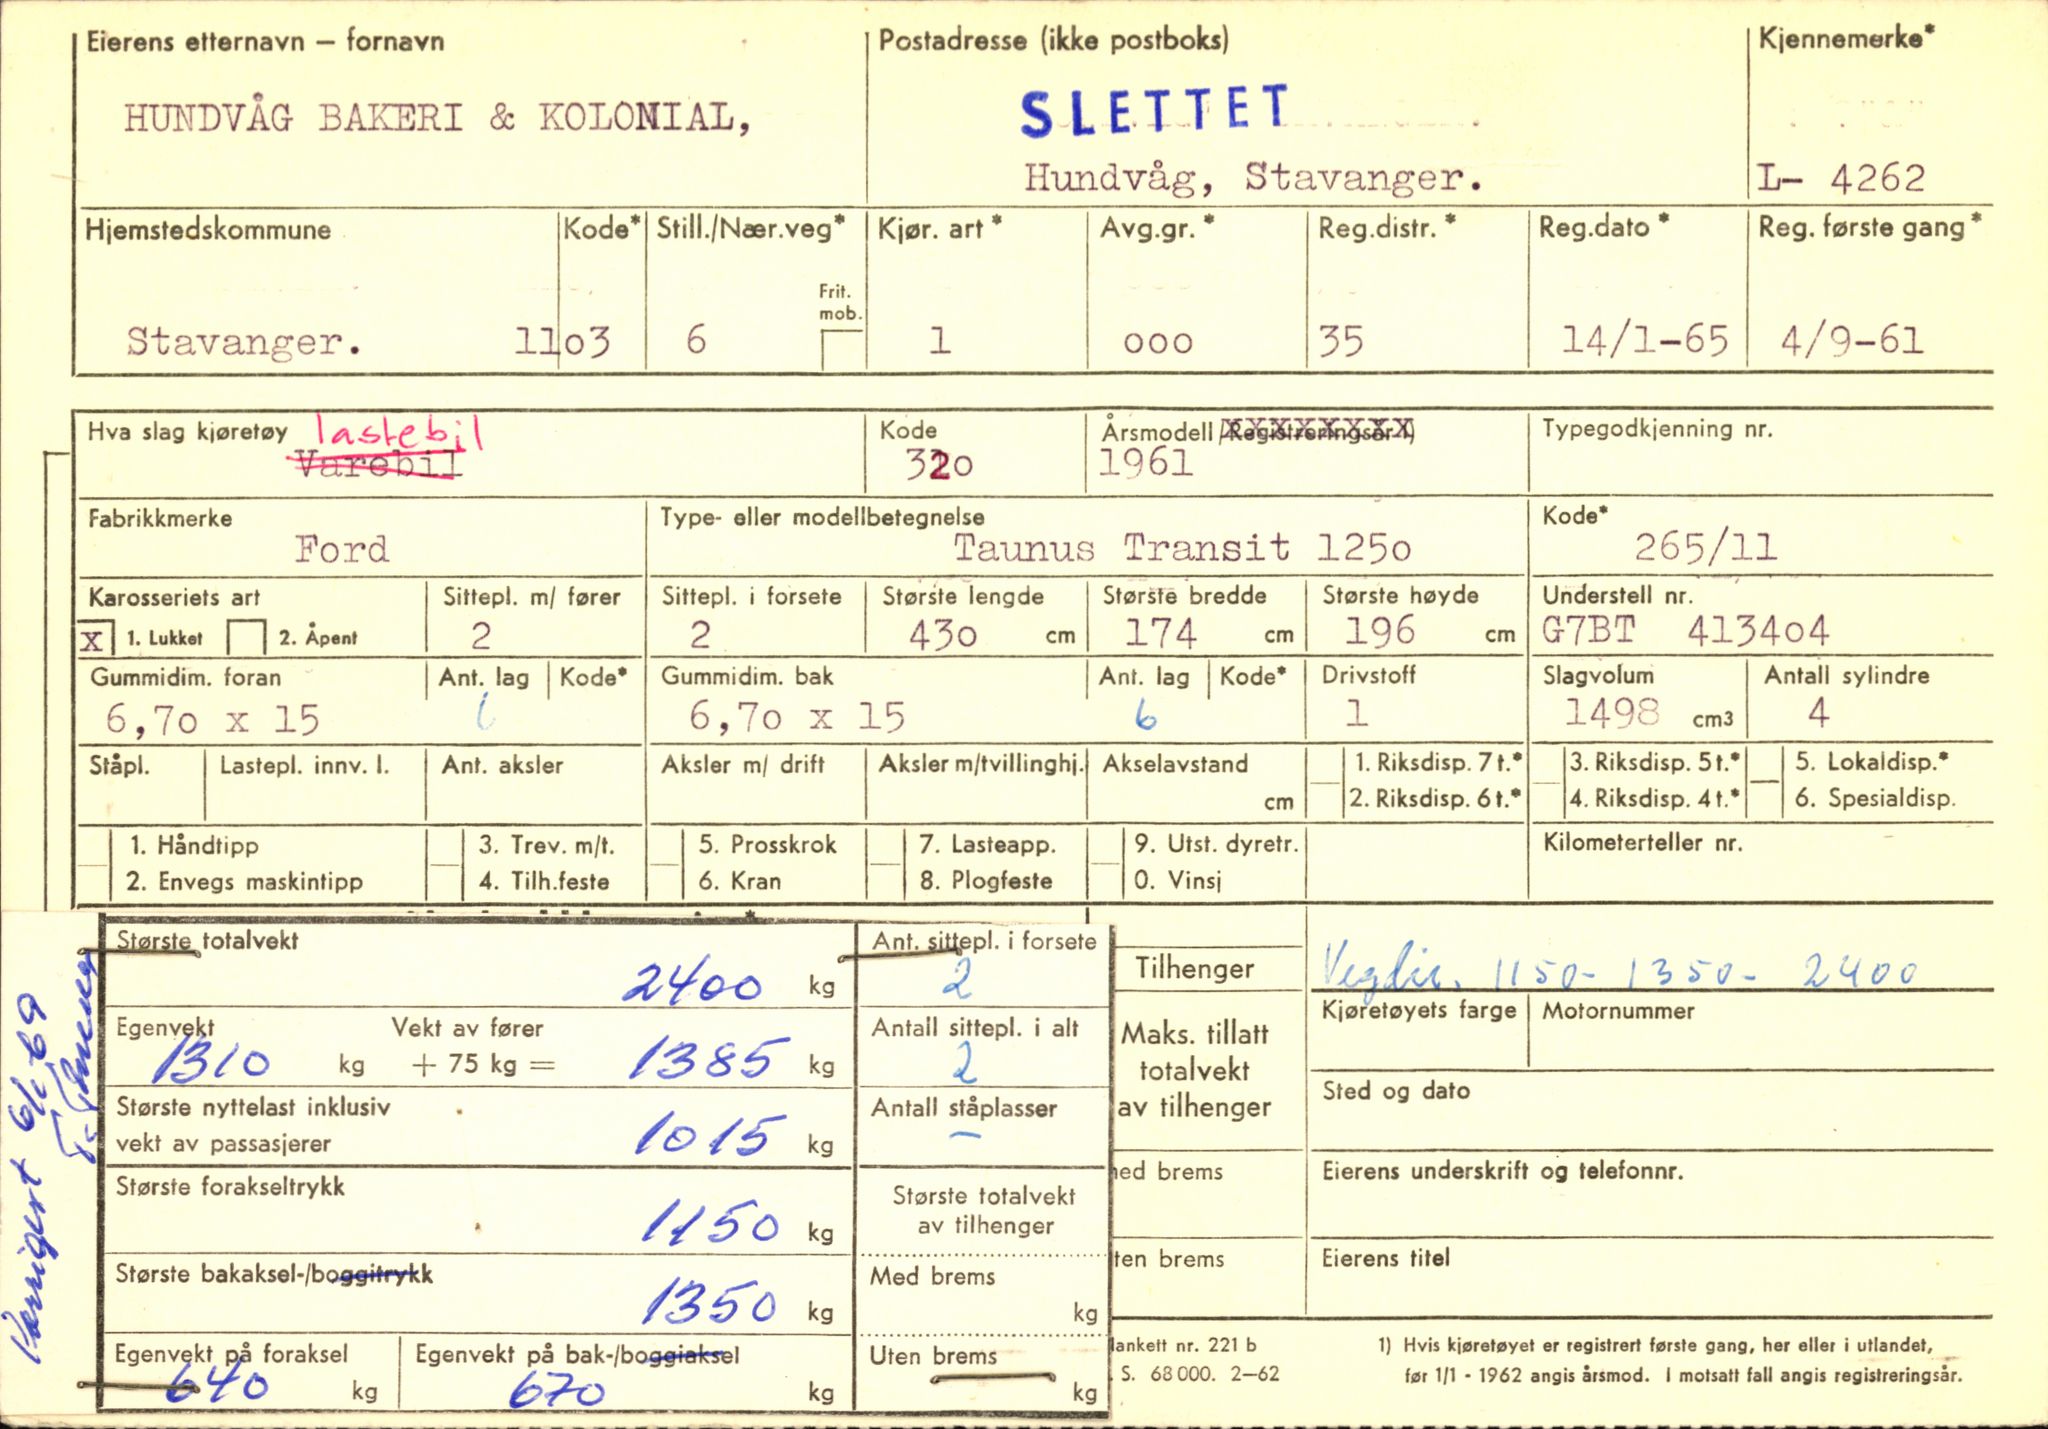 Eierens etternavn – fornavn
HUNDVÅG BAKERI & KOLONIAL,
Postadresse (ikke postboks)
SLETTET
Hundvåg, Stavanger.
Kjennemerke*
L- 4262
Hjemstedskommune
Stavanger.
Kode*
11o3
Still./Nær.veg*
6
Frit.
mob.
Kjør. art*
1
Avg.gr.*
ooo
Reg.distr.*
35
Reg.dato*
14/1-65
Reg. første gang*
4/9-61
Hva slag kjøretøy
lastebil
Varebil
Kode
32o
Årsmodell/Registreringsår 1)
1961
Typegodkjenning nr.
Fabrikkmerke
Ford
Type- eller modellbetegnelse
Taunus Transit 125o
Kode*
265/11
Karosseriets art
X 1. Lukket 2. Åpent
Sittepl. m/ fører
2
Sittepl. i forsete
2
Største lengde
43o cm
Største bredde
174 cm
Største høyde
196 cm
Understell nr.
G7BT 4134o4
Gummidim. foran
6,7o x 15
Ant. lag
Kode*
Gummidim. bak
6,7o x 15
Ant. lag
6
Kode*
Drivstoff
1
Slagvolum
1498 cm3
Antall sylindre
4
Ståpl.
Lastepl. innv. l.
Ant. aksler
Aksler m/ drift
Aksler m/tvillinghj.
Akselavstand
cm
1. Riksdisp. 7 t.*
2. Riksdisp. 6 t.*
3. Riksdisp. 5 t.*
4. Riksdisp. 4 t.*
5. Lokaldisp.*
6. Spesialdisp.
1. Håndtipp
2. Envegs maskintipp
3. Trev. m/t.
4. Tilh.feste
5. Prosskrok
6. Kran
7. Lasteapp.
8. Plogfeste
9. Utst. dyretr.
0. Vinsj
Kilometerteller nr.
Største totalvekt
2400 kg
Ant. sittepl. i forsete
2
Egenvekt
1310 kg
Vekt av fører
+ 75 kg = 1385 kg
Antall sittepl. i alt
2
Største nyttelast inklusiv
vekt av passasjerer
1015 kg
Antall ståplasser
–
Største forakseltrykk
1150 kg
Største totalvekt
av tilhenger
Største bakaksel-/boggitrykk
1350 kg
Med brems
kg
Egenvekt på foraksel
640 kg
Egenvekt på bak-/boggiaksel
670 kg
Uten brems
kg
Tilhenger
Maks. tillatt
totalvekt
av tilhenger
ed brems
ten brems
Vegdir. 1150- 1350- 2400
Kjøretøyets farge
Motornummer
Sted og dato
Eierens underskrift og telefonnr.
Eierens titel
lankett nr. 221 b
. S. 68 000. 2–62
1) Hvis kjøretøyet er registrert første gang, her eller i utlandet,
før 1/1 - 1962 angis årsmod. I motsatt fall angis registreringsår.